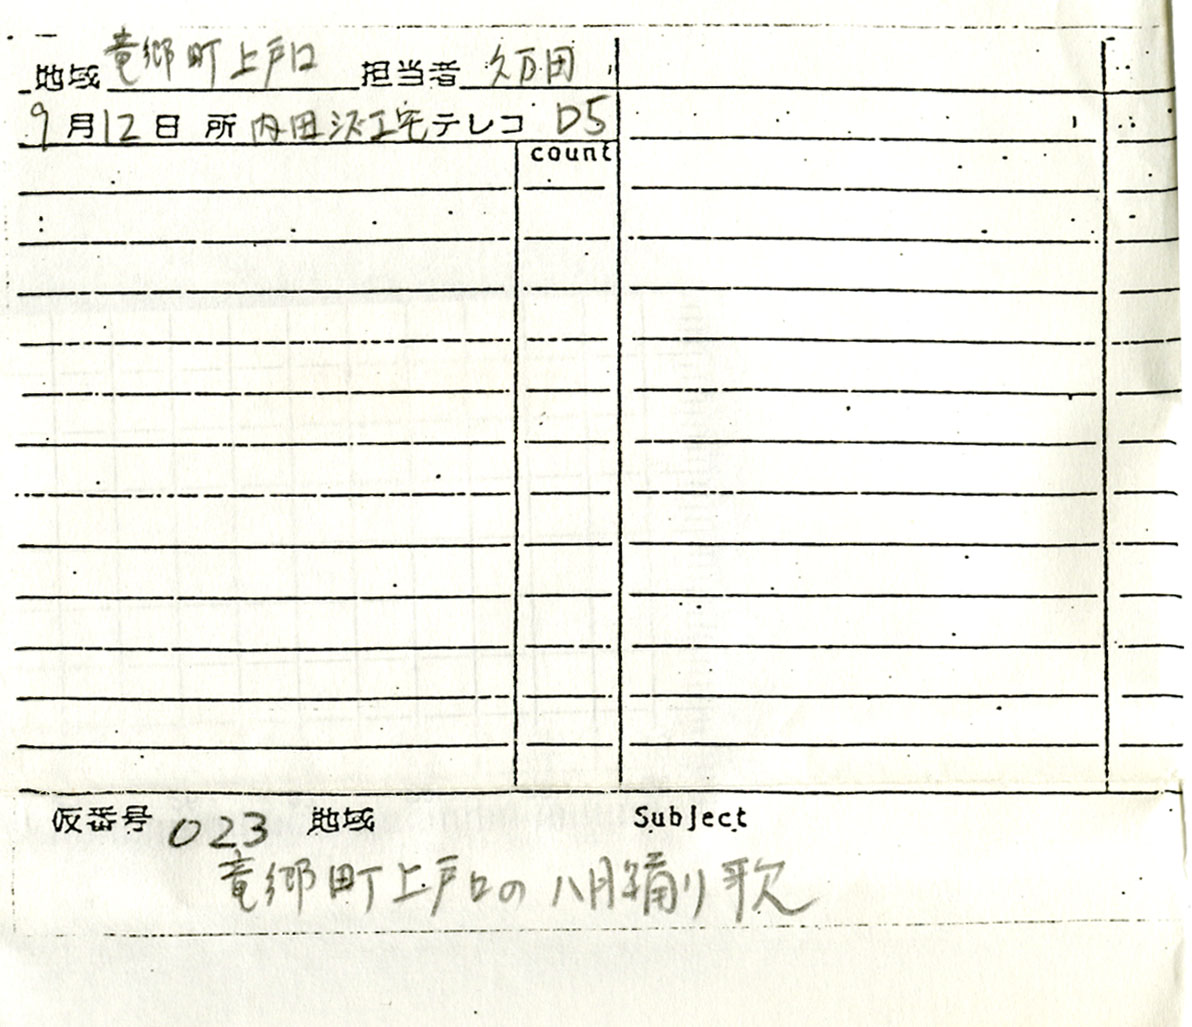 地域 竜郷町上戸口 担当者 久万田
9月12日 所 内田 宅 テレコ D5
count
仮番号 023 地域 Subject
竜郷町上戸口の八月踊り歌